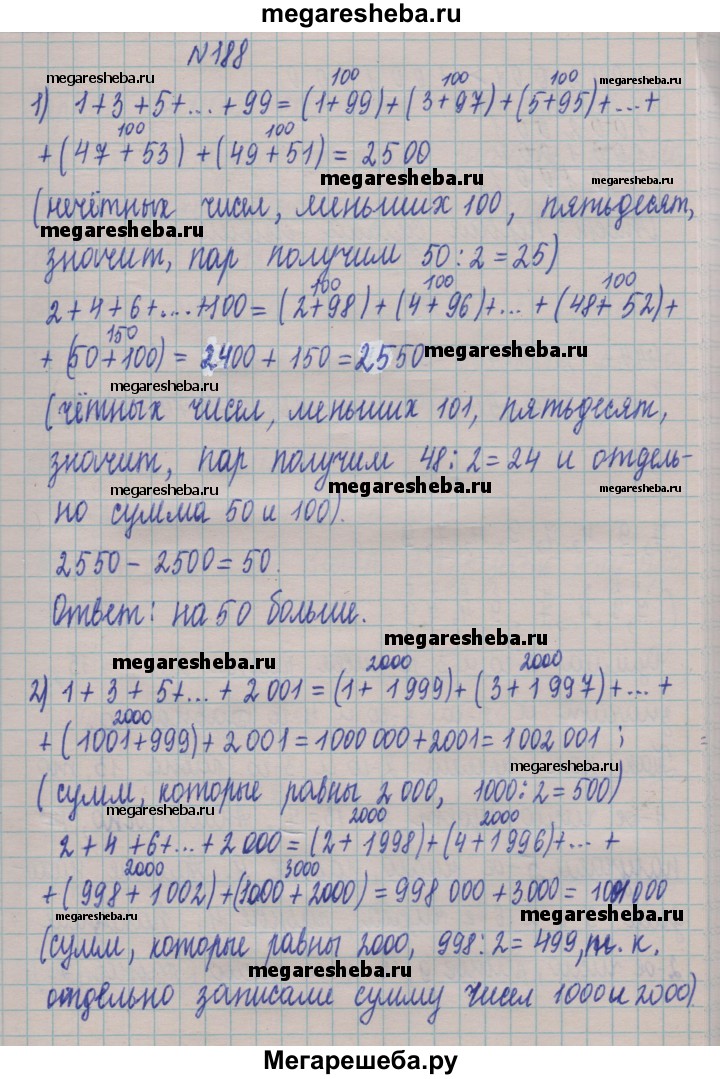 megaresheba.ru
N188
megaresheba.ru megaresheba.ru megaresheba.ru
100 100 100
1) 1+3+5+...+99=(1+99)+(3+97)+(5+95)+...+
100 100
+(47+53)+(49+51)=2500
megaresheba.ru megaresheba.ru
(нечётных чисел, меньших 100, пятьдесят,
megaresheba.ru
значит, пар получим 50:2=25)
100 100 100
2+4+6+...+100=(2+98)+(4+96)+...+(48+52)+
150
+(50+100)=2400+150=2550
megaresheba.ru
megaresheba.ru
(чётных чисел, меньших 101, пятьдесят,
значит, пар получим 48:2=24 и отдель-
megaresheba.ru megaresheba.ru megaresheba.ru
но сумма 50 и 100).
2550-2500=50.
Ответ: на 50 больше.
megaresheba.ru
megaresheba.ru
2000 2000
2) 1+3+5+...+2001=(1+1999)+(3+1997)+...+
2000
+(1001+999)+2001=1000000+2001=1002001;
megaresheba.ru
(сумм, которые равны 2000, 1000:2=500)
megaresheba.ru
2000 2000
2+4+6+...+2000=(2+1998)+(4+1996)+...+
2000 3000
+(998+1002)+(1000+2000)=998000+3000=1001000
megaresheba.ru megaresheba.ru
(сумм, которые равны 2000, 998:2=499, т.к.
megaresheba.ru
отдельно записали сумму чисел 1000 и 2000)
megaresheba.ru
Мегарешеба.ру